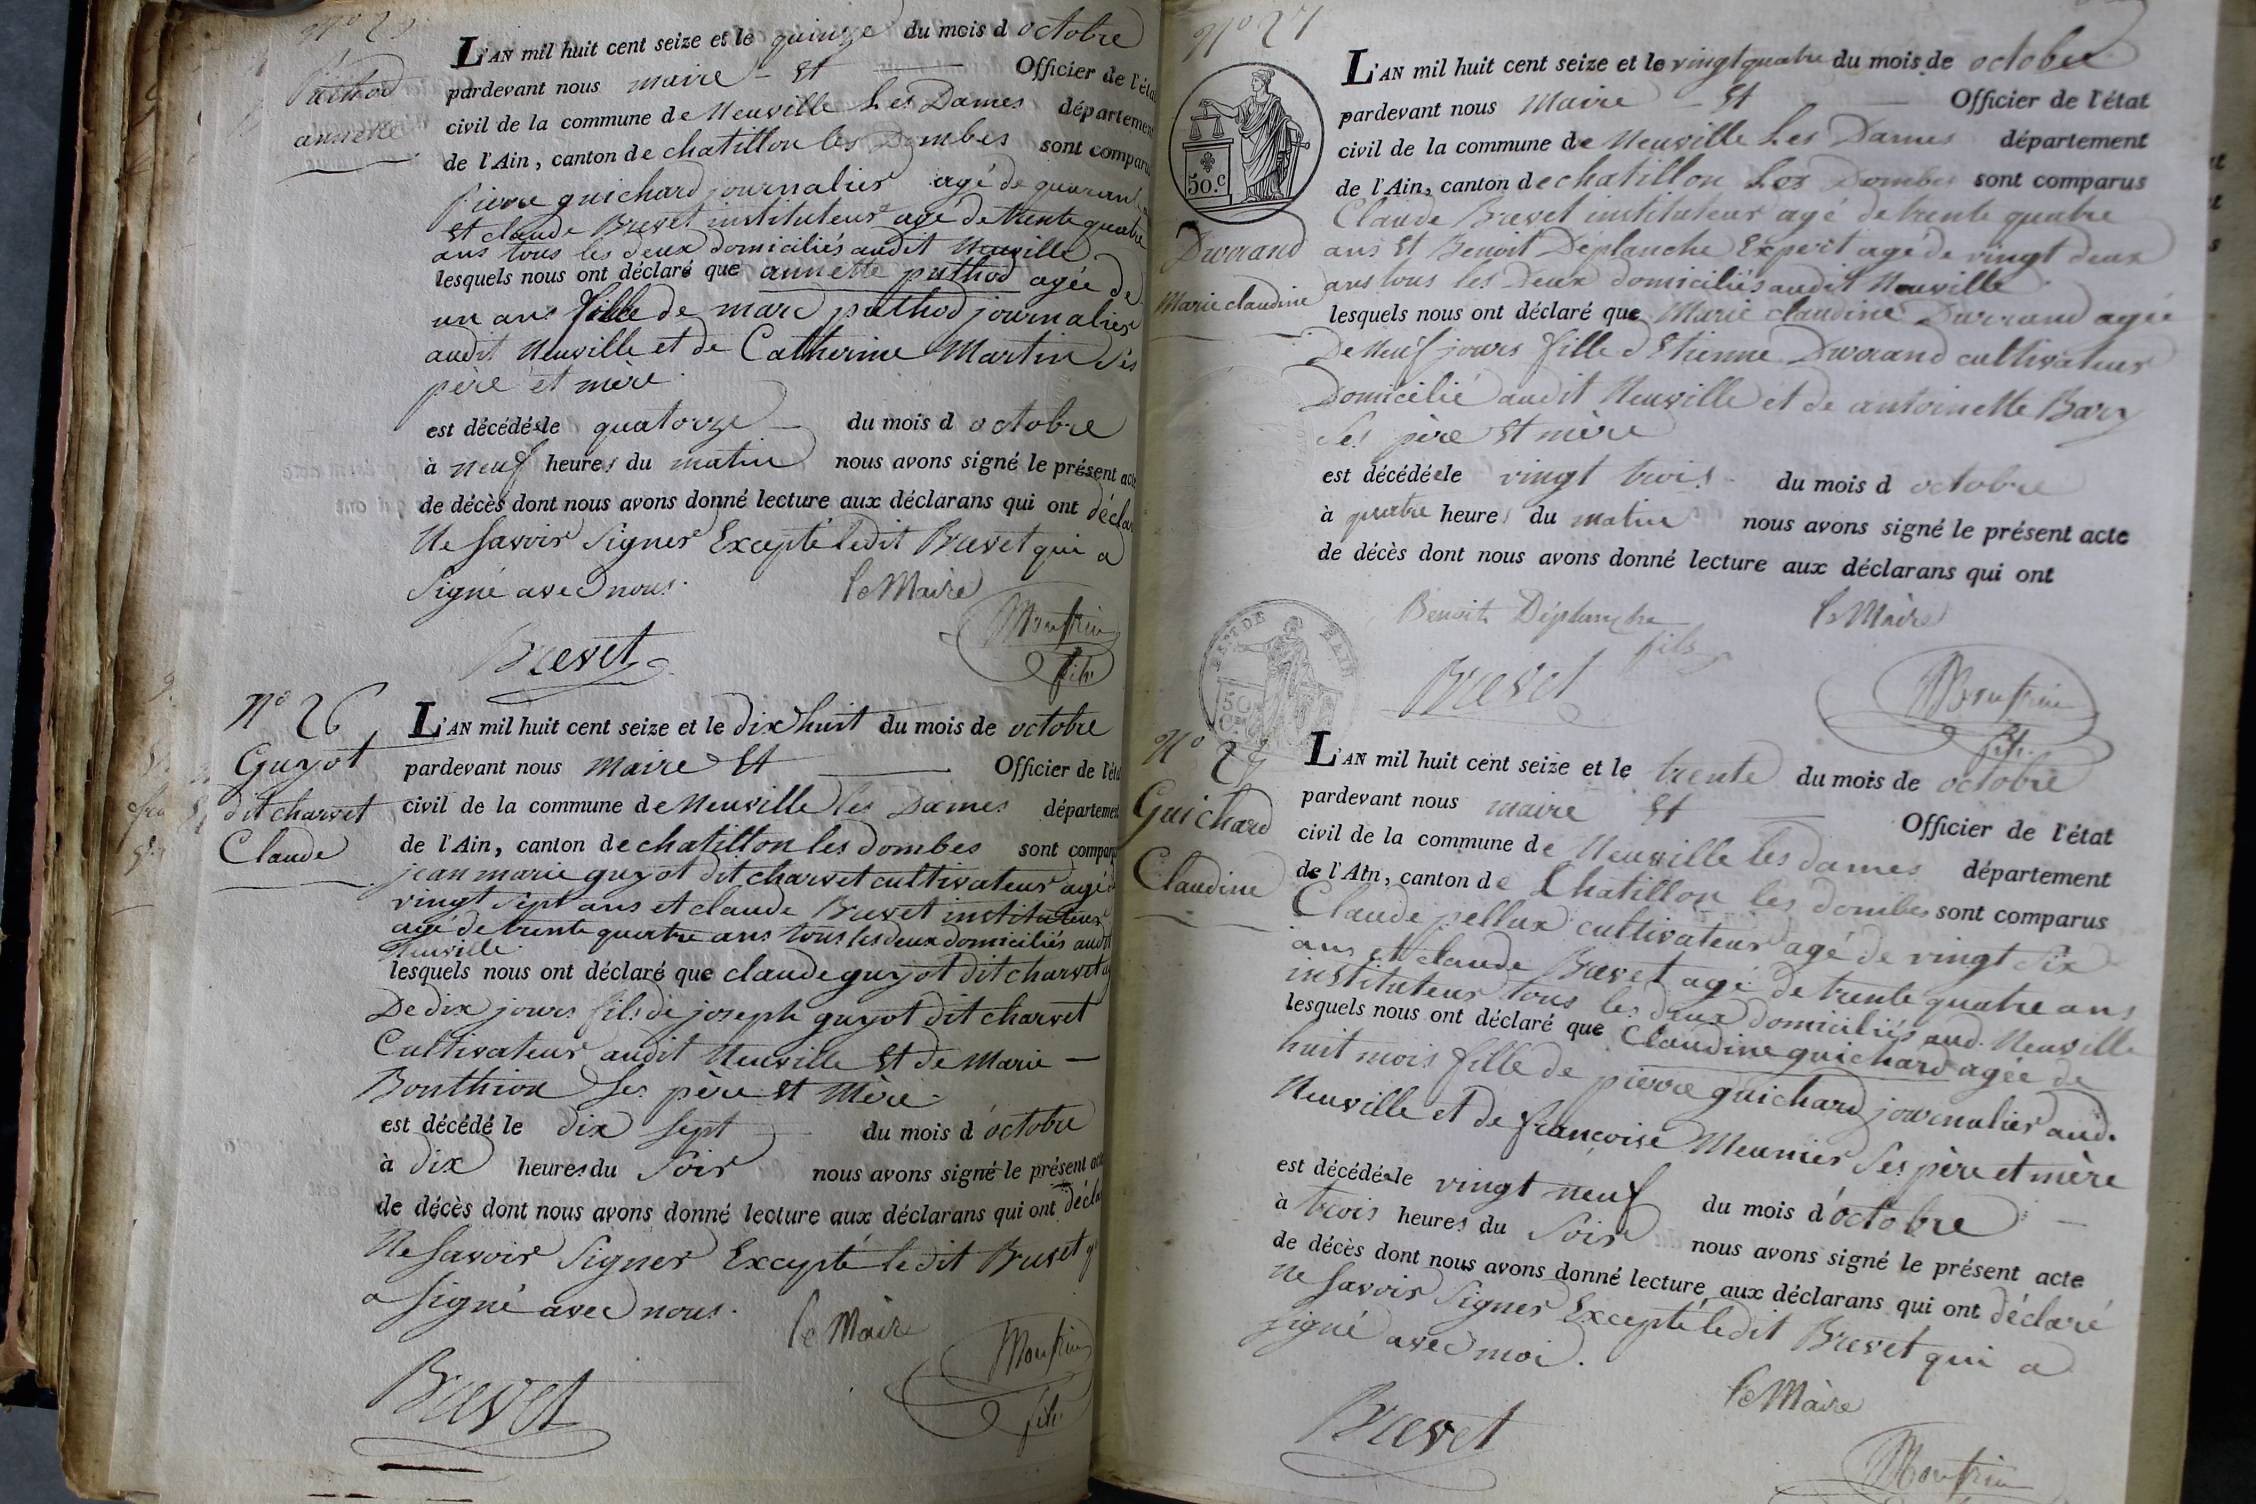 N° 25
Puthod
annette
L'AN mil huit cent seize et le quinze du mois d octobre
pardevant nous maire Et Officier de l'éta
civil de la commune de Neuville Les Dames département
de l'Ain, canton de chatillon les Dombes sont comparu
Pierre guichard journalier agé de quarante
et claude Brevet instituteur agé de trente quatre
ans tous les deux domiciliés audit Neuville
lesquels nous ont déclaré que annette puthod agée de
un ans fille de marc puthod journalier
audit Neuville et de Catherine Martin ses
père et mère
est décédée le quatorze du mois d octobre
à neuf heures du matin nous avons signé le présent acte
de décès dont nous avons donné lecture aux déclarans qui ont décla
Ne savoir Signer Excepté ledit Brevet qui a
Signé avec nous. le Maire
Brevet
Monfrin
fils
N° 26
Guyot
dit charvet
Claude
L'AN mil huit cent seize et le dix huit du mois de octobre
pardevant nous Maire Et Officier de l'éta
civil de la commune de Neuville les Dames département
de l'Ain, canton de chatillon les dombes sont comparu
jean marie guyot dit charvet cultivateur agé
vingt sept ans et claude Brevet instituteur
agé de trente quatre ans tous les deux domiciliés audit
Neuville
lesquels nous ont déclaré que claude guyot dit charvet
De dix jours fils de joseph guyot dit charvet
Cultivateur audit Neuville Et de Marie
Bonthion Ses père Et Mère
est décédé le dix sept du mois d octobre
à dix heures du Soir nous avons signé le présent acte
de décès dont nous avons donné lecture aux déclarans qui ont décla
Ne Savoir Signer Excepté ledit Brevet
a Signé avec nous.
le Maire
Brevet
Monfrin
fils
N° 27
50.c
Durrand
Marie claudine
L'AN mil huit cent seize et le vingt quatre du mois de octobre
pardevant nous Maire Et Officier de l'état
civil de la commune de Neuville Les Dames département
de l'Ain, canton de chatillon Les Dombes sont comparus
Claude Brevet instituteur agé de trente quatre
ans Et Benoit Déplanche Expert agé de vingt deux
ans tous les Deux domiciliés audit Neuville
lesquels nous ont déclaré que Marie claudine Durrand agée
De Neuf jours fille d Etienne Durrand cultivateur
Domicilié audit Neuville et de antoinette Bary
Ses père Et mère
est décédée le vingt trois du mois d octobre
à quatre heures du matin nous avons signé le présent acte
de décès dont nous avons donné lecture aux déclarans qui ont
Benoit Déplanche
fils
le Maire
Brevet
Monfrin
fils
N°
Guichard
Claudine
L'AN mil huit cent seize et le trente du mois de octobre
pardevant nous maire Et Officier de l'état
civil de la commune de Neuville les dames département
de l'Ain, canton de Chatillon les dombes sont comparus
Claude pellux cultivateur agé de vingt Six
ans et claude Brevet agé de trente quatre ans
instituteur tous les deux domiciliés aud. Neuville
lesquels nous ont déclaré que Claudine guichard agée de
huit mois fille de pierre guichard journalier aud.
Neuville et de françoise Meunier Ses père et mère
est décédée le vingt neuf du mois d'octobre
à trois heures du Soir nous avons signé le présent acte
de décès dont nous avons donné lecture aux déclarans qui ont déclaré
ne Savoir Signer Excepté ledit Brevet qui a
signé avec moi.
le Maire
Brevet
Monfrin